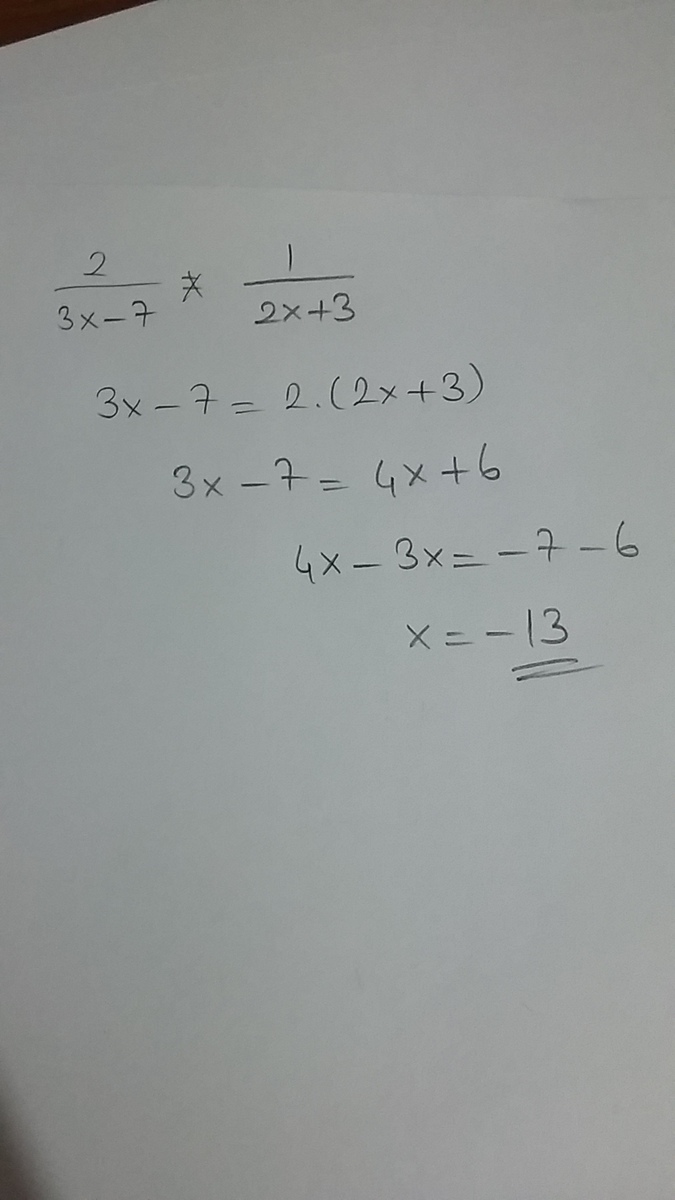 2/(3x-7) ⚹ 1/(2x+3)
3x-7 = 2.(2x+3)
3x-7 = 4x+6
4x-3x = -7-6
x = -13